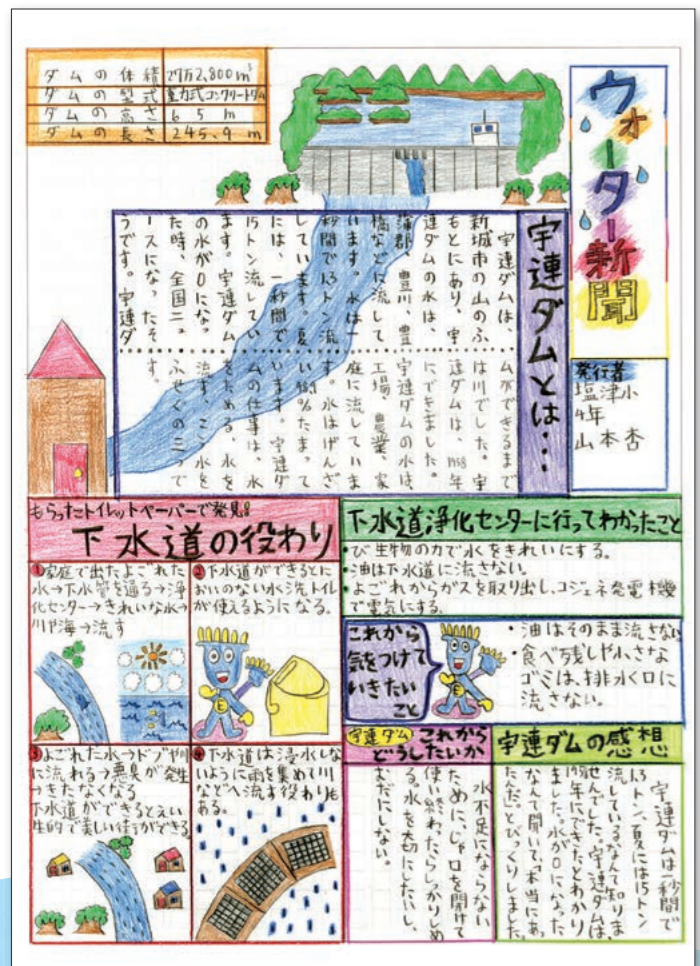 ウォーター新聞
発行者
塩津小
4年
山本杏
ダムの体積 27万2,800m³
ダムの型式 重力式コンクリートダム
ダムの高さ 65m
ダムの長さ 245.9m
宇連ダムとは…
宇連ダムは、
新城市の山のふ
もとにあり、宇
連ダムの水は、
蒲郡、豊川、豊
橋などに流して
います。水は一
秒間で13トン流
しています。夏
には、一秒間で
15トン流してい
ます。宇連ダム
の水が0になっ
た時、全国ニュ
ースになったそ
うです。宇連ダ
ムができるまで
は川でした。宇
連ダムは、1958年
にできました。
宇連ダムの水は、
工場、農業、家
庭に流していま
す。水はげんざ
い たまって
います。宇連ダ
ムの仕事は、水
をためる、水を
流す、こう水を
ふせぐの三つで
す。
もらったトイレットペーパーで発見!
下水道の役わり
①家庭で出たよごれた
水→下水管を通る→浄
化センター→きれいな水→
川や海→流す
②下水道ができるとに
おいのない水洗トイレ
が使えるようになる。
③よごれた水→ドブや川
に流れる→悪臭が発生
→きたなくなる
下水道ができるとえい
生的で美しい街ができる
④下水道は浸水しな
いように雨を集めて川
などへ流す役わりも
ある。
下水道浄化センターに行ってわかったこと
・び生物の力で水をきれいにする。
・油は下水道に流さない。
・よごれからガスを取り出し、コジェネ発電機
で電気にする。
これから
気をつけて
いきたい
こと
・油はそのまま流さない
・食べ残しや小さな
ゴミは、排水口に
流さない。
宇連ダム これから
どうしたいか
水不足にならない
ために、じゃ口を開けて
使い終わったらしっかりしめ
る。水を大切にしたいし、
むだにしない。
宇連ダムの感想
宇連ダムは一秒間で
13トン、夏には15トン
流しているなんて知りま
せんでした。宇連ダムは、
1958年にできたとわかり
ました。水が0になった
なんて聞いて、「本当にあっ
たんだ。」とびっくりしました。